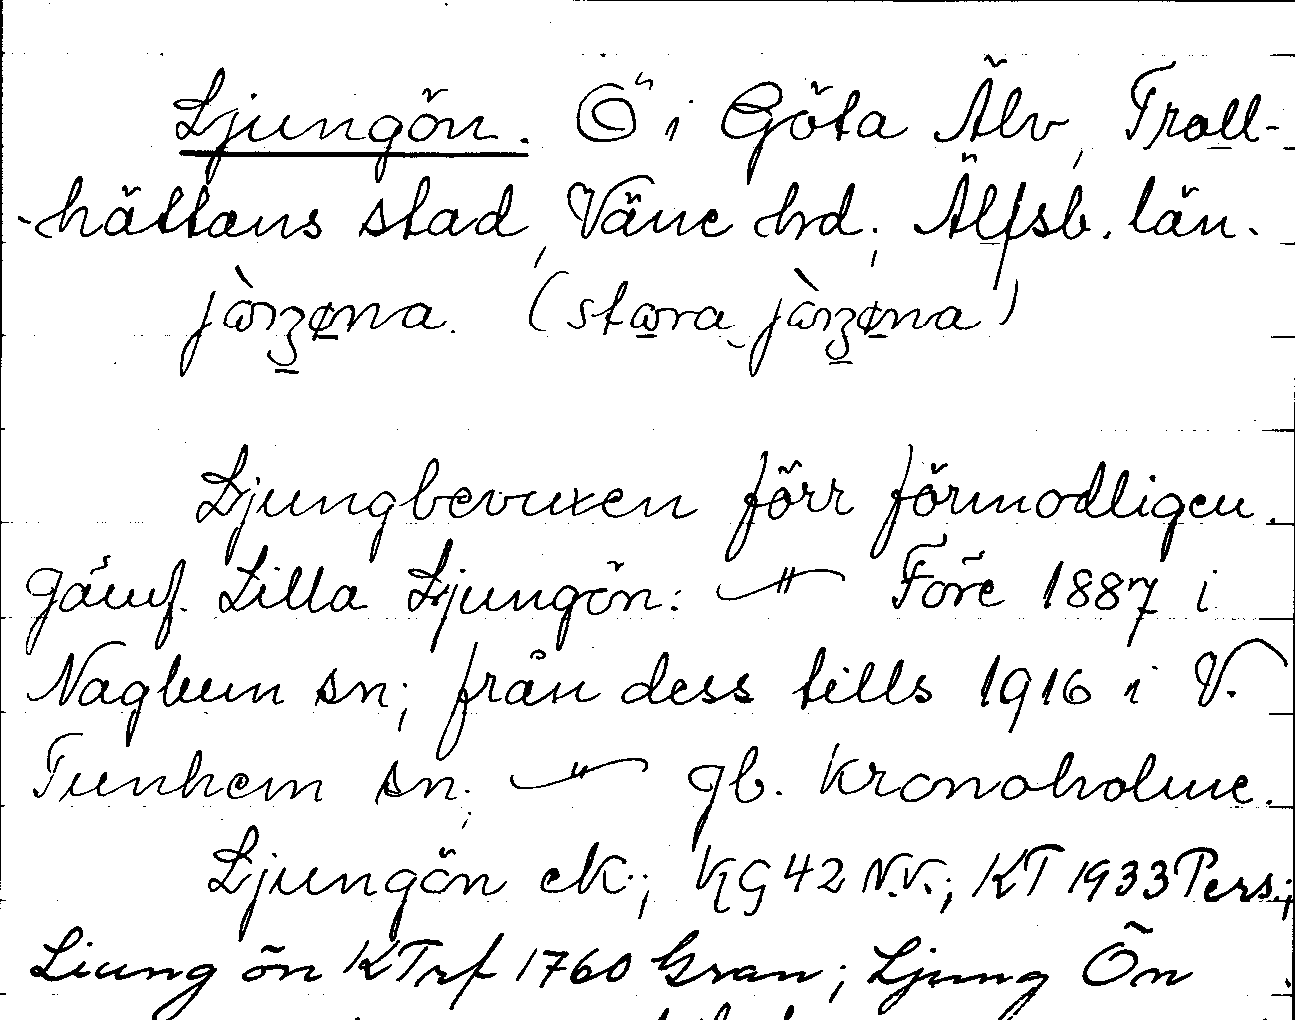 Ljungön. Ö i Göta Älv, Troll-
-hättans stad, Väne hrd, Älfsb. län.
Ljungbevuxen förr förmodligen.
Jämf. Lilla Ljungön: —"— Före 1887 i
Naglum sn; från dess tills 1916 i V.
Tunhem sn. —"— gb. Kronoholme.
Ljungön ek.; KG 42 N.V.; KT 1933 Pers.;
Liung ön KTrf 1760 Gran; Ljung Ön